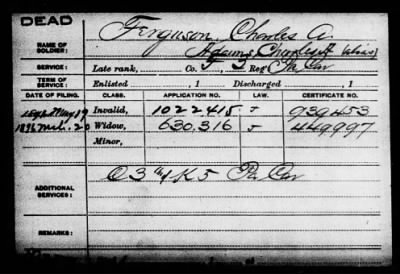 DEAD
NAME OF SOLDIER: Ferguson, Charles A.
Adams, (alias)
SERVICE: Late rank, Co. F 3 Reg't Pa Cav
TERM OF SERVICE: Enlisted , 1 Discharged , 1
DATE OF FILING. CLASS. APPLICATION NO. LAW. CERTIFICATE NO.
May 19 Invalid, 1022415 939453
1896 Mch. 20 Widow, 630,316 449997
Minor,
ADDITIONAL SERVICES: K 5 Pa Cav
REMARKS: